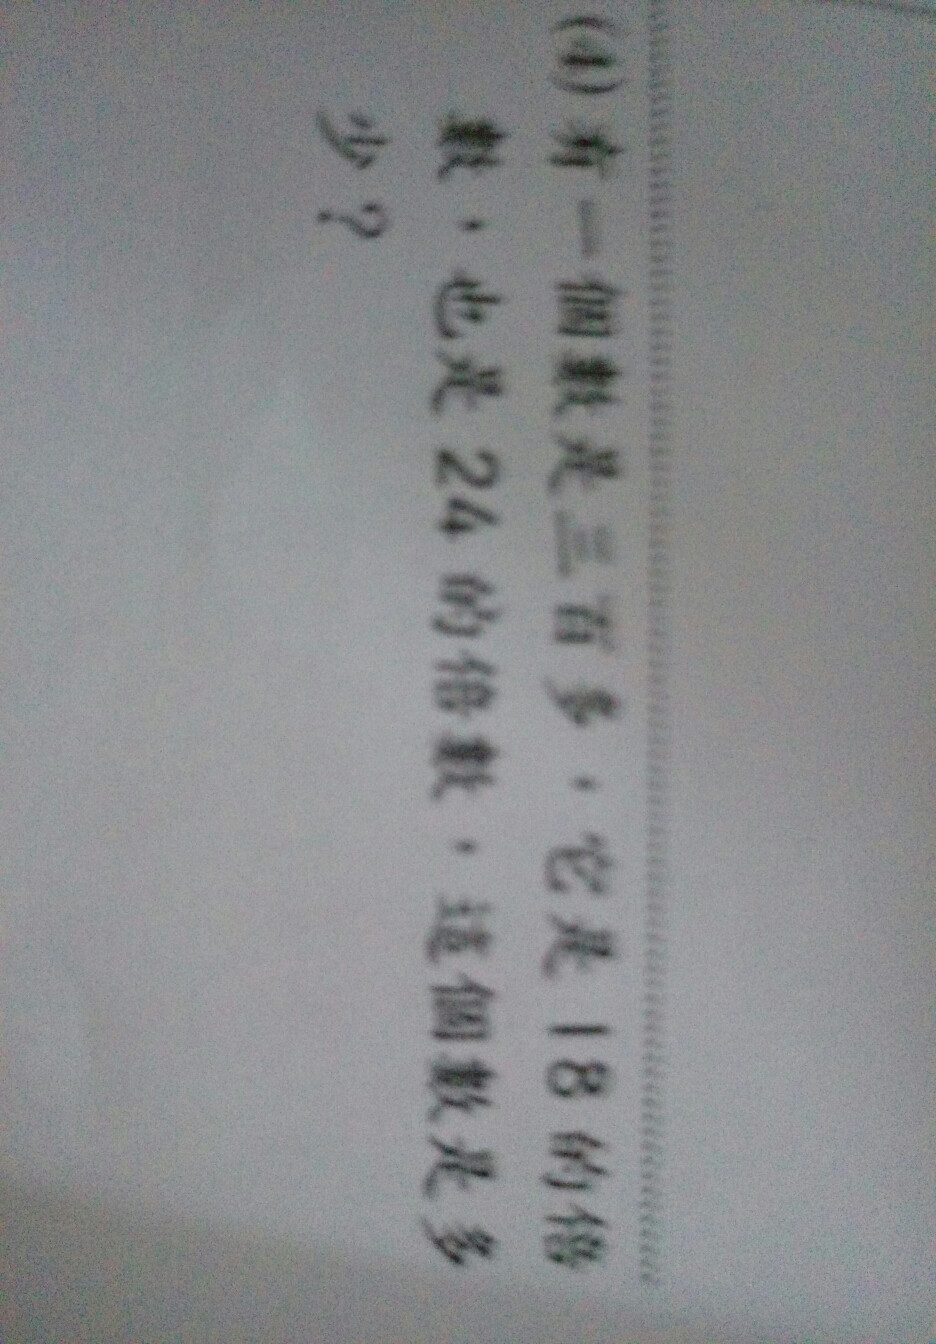 (4) 有一個數是三百多，它是18的倍
數，也是24的倍數，這個數是多
少？